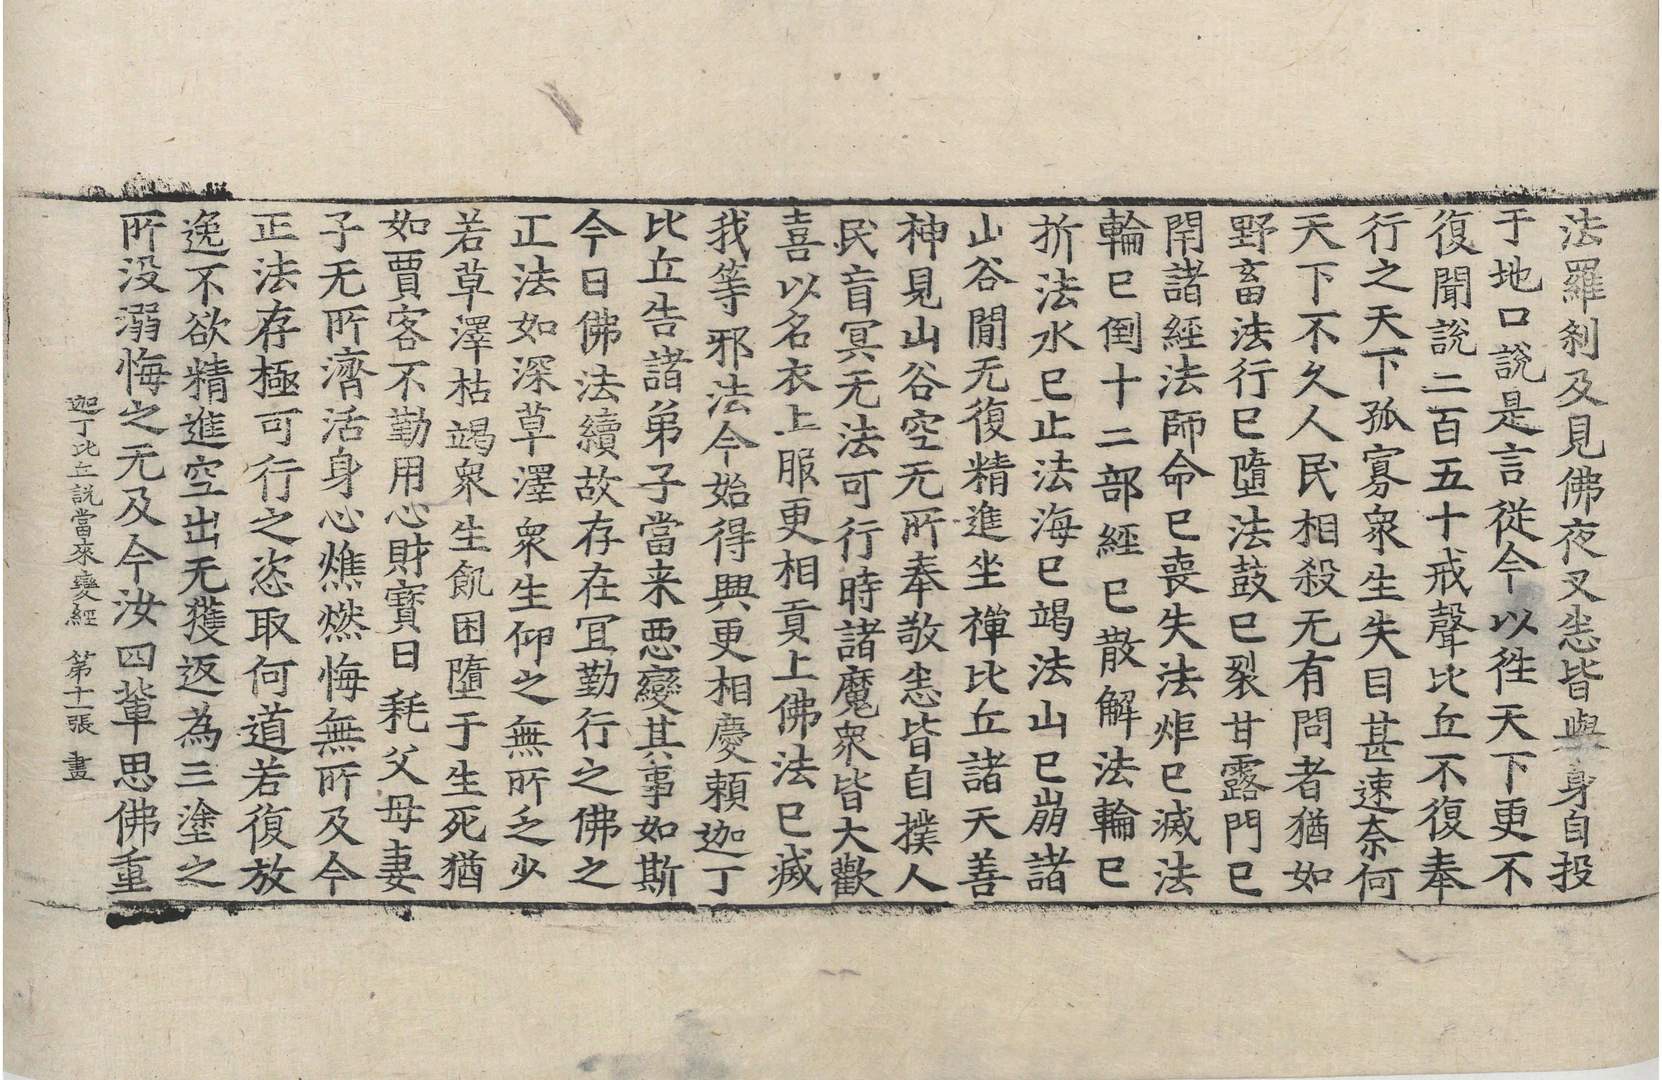 法羅剎及見佛夜叉恙皆與身自投
于地口說是言從今以往天下更不
復聞說二百五十戒聲比丘不復奉
行之天下孤寡衆生失目甚速奈何
天下不久人民相殺无有問者猶如
野畜法行已墮法鼓已裂甘露門已
閇諸經法師命已喪失法炬已滅法
輪已倒十二部經已散解法輪已
折法水已止法海已竭法山已崩諸
山谷閒无復精進坐禪比丘諸天善
神見山谷空无所奉敬恙皆自撲人
民盲冥无法可行時諸魔衆皆大歡
喜以名衣上服更相貢上佛法已滅
我等邪法今始得興更相慶頼迦丁
比丘告諸弟子當来惡變其事如斯
今日佛法續故存在冝勤行之佛之
正法如深草澤衆生仰之無所乏少
若草澤枯竭衆生飢困墮于生死猶
如賈客不勤用心財寶日耗父母妻
子无所濟活身心燋燃悔無所及今
正法存極可行之恣取何道若復放
逸不欲精進空出无獲返為三塗之
所没溺悔之无及今汝四輩思佛重
迦丁比丘説當来變經 第十一張 畫